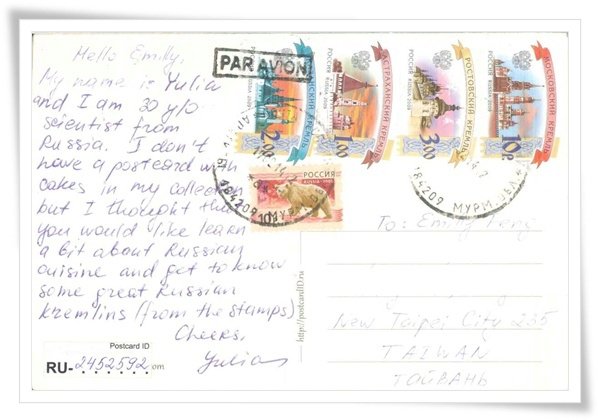 Hello Emily,
My name is Yulia
and I am 30 y/o
scientist from
Russia. I don't
have a postcard with
cakes in my collection
but I thought that
you would like learn
a bit about Russian
cuisine and got to know
some great Russian
kremlins (from the stamps)
Cheers,
Yulia
Postcard ID
RU-2452592 om
PAR AVION
РОССИЯ RUSSIA 2009
2.00
АСТРАХАНСКИЙ КРЕМЛЬ
РОССИЯ RUSSIA 2009
1.00
РОСТОВСКИЙ КРЕМЛЬ
РОССИЯ RUSSIA 2009
3.00
МОСКОВСКИЙ КРЕМЛЬ
РОССИЯ RUSSIA 2009
10р
РОССИЯ
184209 МУРМ
184209 МУРМ
http://postcardID.ru
To: Emily
New Taipei City 235
TAIWAN
ТАЙВАНЬ